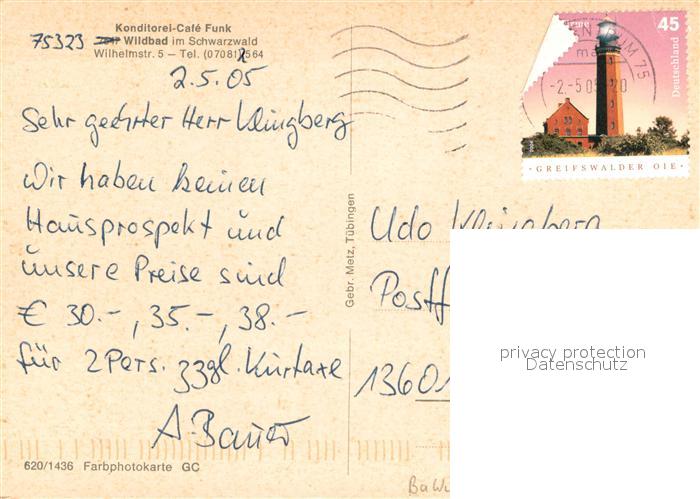 Konditorei-Café Funk
75323 Wildbad im Schwarzwald
Wilhelmstr. 5 — Tel. (07081) 2564
2.5.05
Sehr geehrter Herr Klingberg
wir haben keinen
Hausprospekt und
unsere Preise sind
€ 30.-, 35.-, 38.-
für 2 Pers. zzgl. Kurtaxe
A. Bauer
620/1436 Farbphotokarte GC
Gebr. Metz, Tübingen
45
Deutschland
75
-2.-5.05-20
· GREIFSWALDER OIE ·
Udo Klingberg
Postf
13601
privacy protection
Datenschutz
BaWü